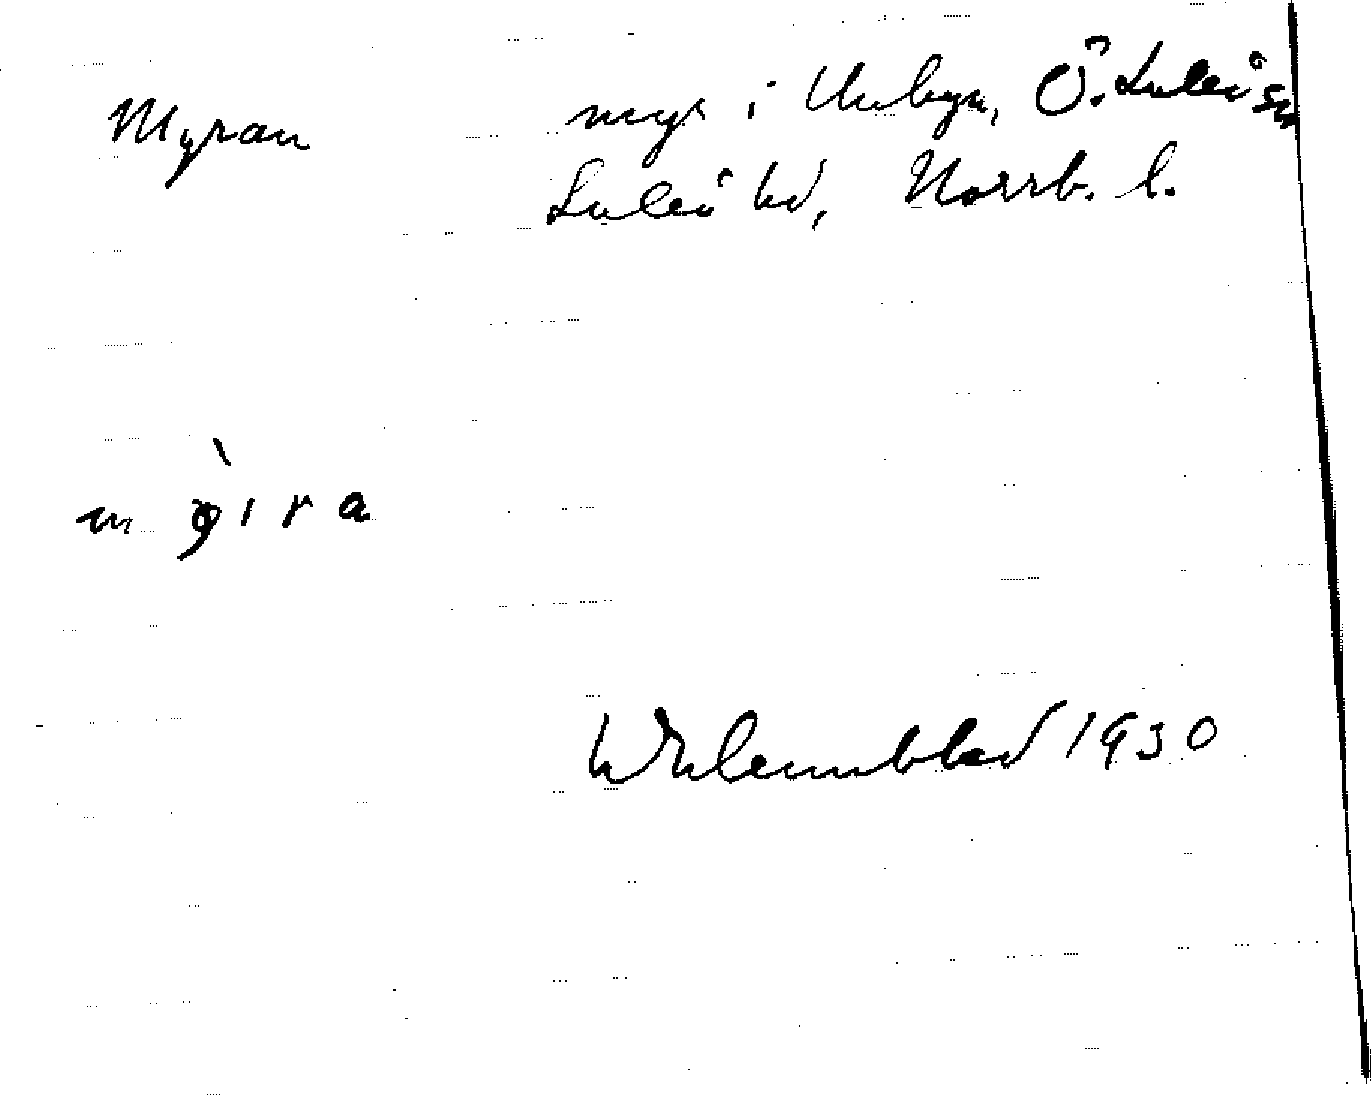 Myran myr i Unbyn, Ö. Luleå sn
Luleå hd, Norrb. l.
1930